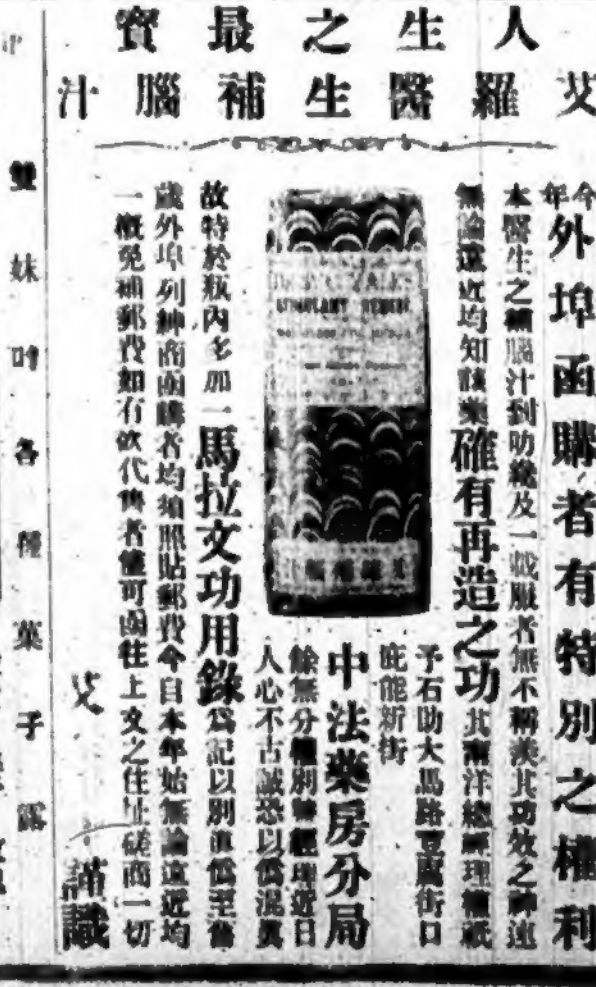 人生之最寶
艾羅醫生補腦汁
今年外埠函購者有特別之權利
本醫生之補腦汁到叻纔及一載服者無不稱羨其功效之神速
無論遠近均知該藥確有再造之功其南洋總經理權祇
予石叻大馬路豐盛街口
庇能新街
中法藥房分局
餘無分權別替經理近日
人心不古誠恐以僞混真
故特於瓶內多加一馬拉文功用錄爲記以別眞僞至舊
歲外埠列紳商函購者均須照貼郵費今自本年始無論遠近均
一概免補郵費如有欲代售者儘可函往上文之住址磋商一切
艾 謹識
雙妹 各種菓子露